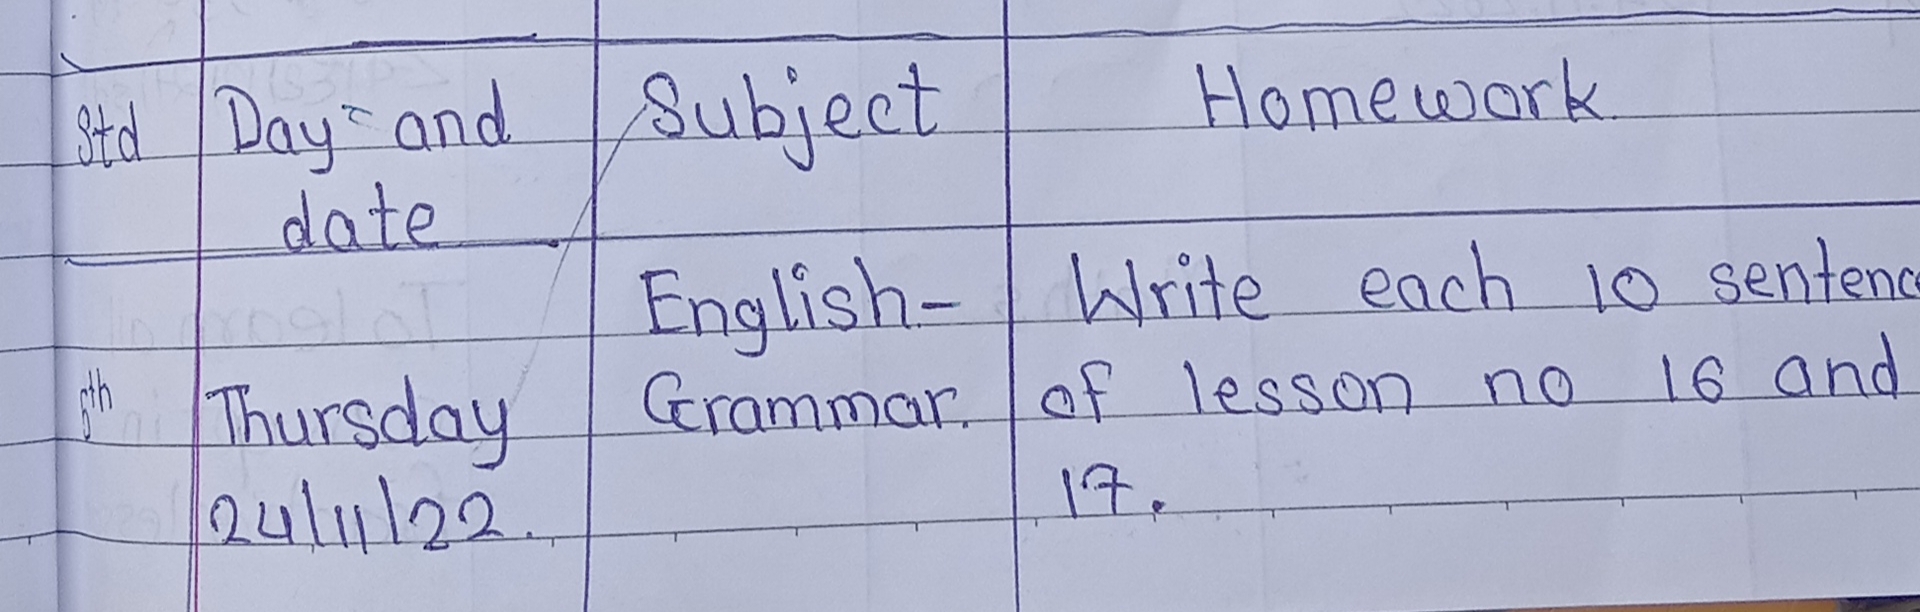 Std Day and Subject Homework
date
English- Write each 10 sentenc
Thursday Grammar. of lesson no 16 and
24/11/22. 17.